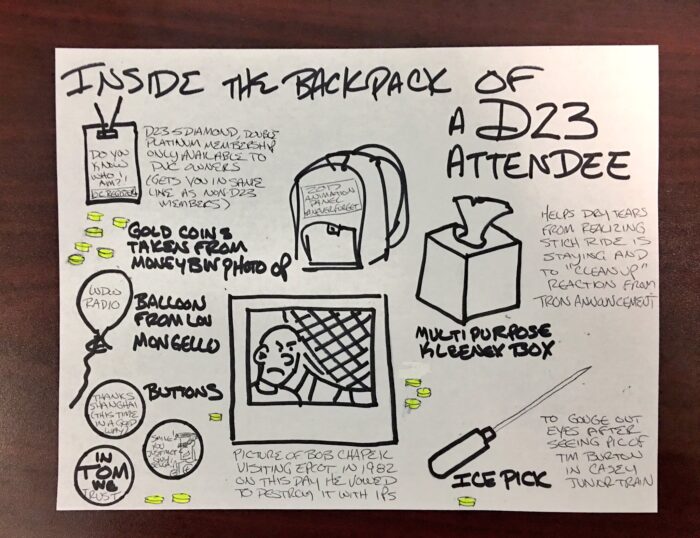 INSIDE THE BACKPACK OF
A D23
ATTENDEE
DO YOU
KNOW
WHO I
AM?!
D23 5 DIAMOND, DOUBLE
PLATINUM MEMBERSHIP
ONLY AVAILABLE TO
DVC OWNERS
(GETS YOU IN SAME
LINE AS NON D23
MEMBERS)
GOLD COINS
TAKEN FROM
MONEY BIN PHOTO OP
2017
ANIMATION
PANEL
#NEVERFORGET
HELPS DRY TEARS
FROM REALIZING
STICH RIDE IS
STAYING AND
TO "CLEAN UP"
REACTION FROM
TRON ANNOUNCEMENT
MULTIPURPOSE
KLEENEX BOX
WDW
RADIO
BALLOON
FROM LOU
MONGELLO
BUTTONS
THANKS
SHANGHAI
(THIS TIME
IN A GOOD
WAY)
SMILE!
YOU
IN
TOM
WE
TRUST
PICTURE OF BOB CHAPEK
VISITING EPCOT IN 1982
ON THIS DAY HE VOWED
TO DESTROY IT WITH IPS
ICE PICK
TO GOUGE OUT
EYES AFTER
SEEING PIC OF
TIM BURTON
IN CASEY
JUNIOR TRAIN